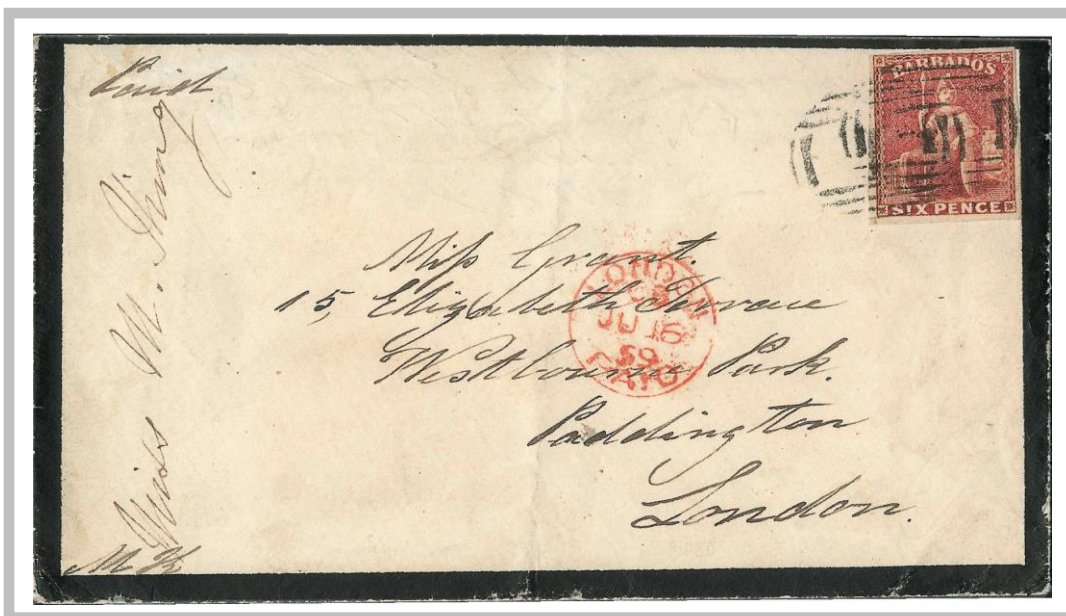 Paid
Miss M. King
BARBADOS
SIX PENCE
Miss Grant.
15, Elizabeth Terrace
Westbourne Park.
Paddington
London.
LONDON
JU 16
59
PAID
M K